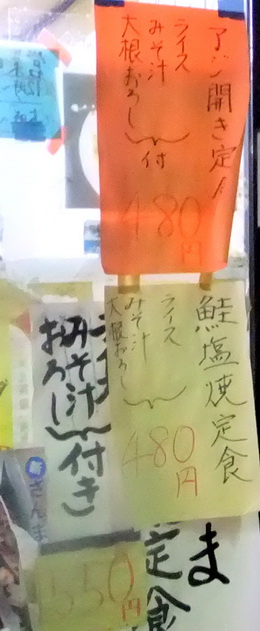 アジ開き定食
ライス
みそ汁
大根おろし
付
480円
鮭塩焼定食
ライス
みそ汁
大根おろし
480円
みそ汁
おろし
付き
さんま
ま
定食
550円